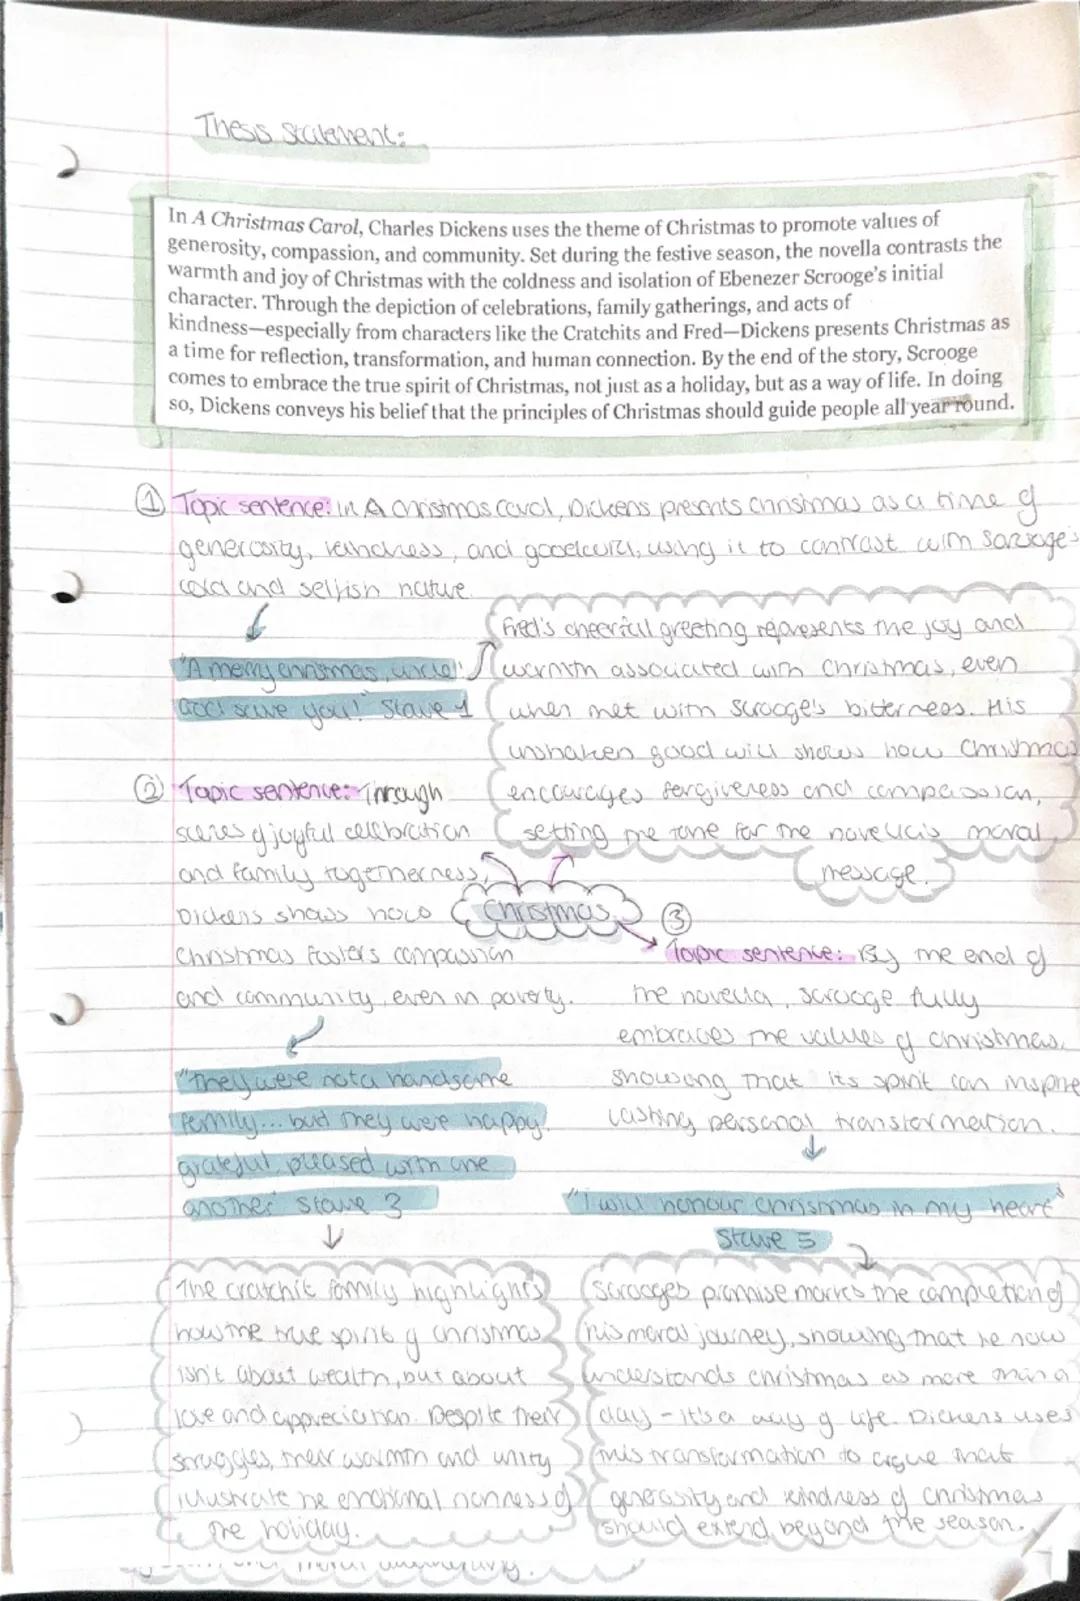 Thesis statement:
In A Christmas Carol, Charles Dickens uses the theme of Christmas to promote values of
generosity, compassion, and community. Set during the festive season, the novella contrasts the
warmth and joy of Christmas with the coldness and isolation of Ebenezer Scrooge's initial
character. Through the depiction of celebrations, family gatherings, and acts of
kindness—especially from characters like the Cratchits and Fred—Dickens presents Christmas as
a time for reflection, transformation, and human connection. By the end of the story, Scrooge
comes to embrace the true spirit of Christmas, not just as a holiday, but as a way of life. In doing
so, Dickens conveys his belief that the principles of Christmas should guide people all year round.
① Topic sentence: In A Christmas carol, Dickens presents christmas as a time of
generosity, kindness, and goodwill, using it to contrast with Scrooge's
cold and selfish nature.
"A merry christmas, uncle!
God save you!" Stave 1
Fred's cheerful greeting represents the joy and
warmth associated with Christmas, even
when met with Scrooge's bitterness. His
unshaken good will shows how Christmas
encourages forgiveness and compassion,
setting the tone for the novella's moral
message.
② Topic sentence: Through
scenes of joyful celebration
and family togetherness,
Dickens shows how
Christmas fosters compassion
and community, even in poverty.
Christmas
③
Topic sentence: By the end of
the novella, scrooge fully
embraces the values of christmas,
showing that its spirit can inspire
lasting personal transformation.
"They were not a handsome
family... but they were happy,
grateful, pleased with one
another" Stave 3
"I will honour christmas in my heart"
Stave 5
The cratchit family highlights
how the true spirit of christmas
isn't about wealth, but about
love and appreciation. Despite their
struggles, their warmth and unity
illustrate the emotional richness of
the holiday.
Scrooge's promise marks the completion of
his moral journey, showing that he now
understands christmas as more than a
day - it's a way of life. Dickens uses
this transformation to argue that
generosity and kindness of christmas
should extend beyond the season.